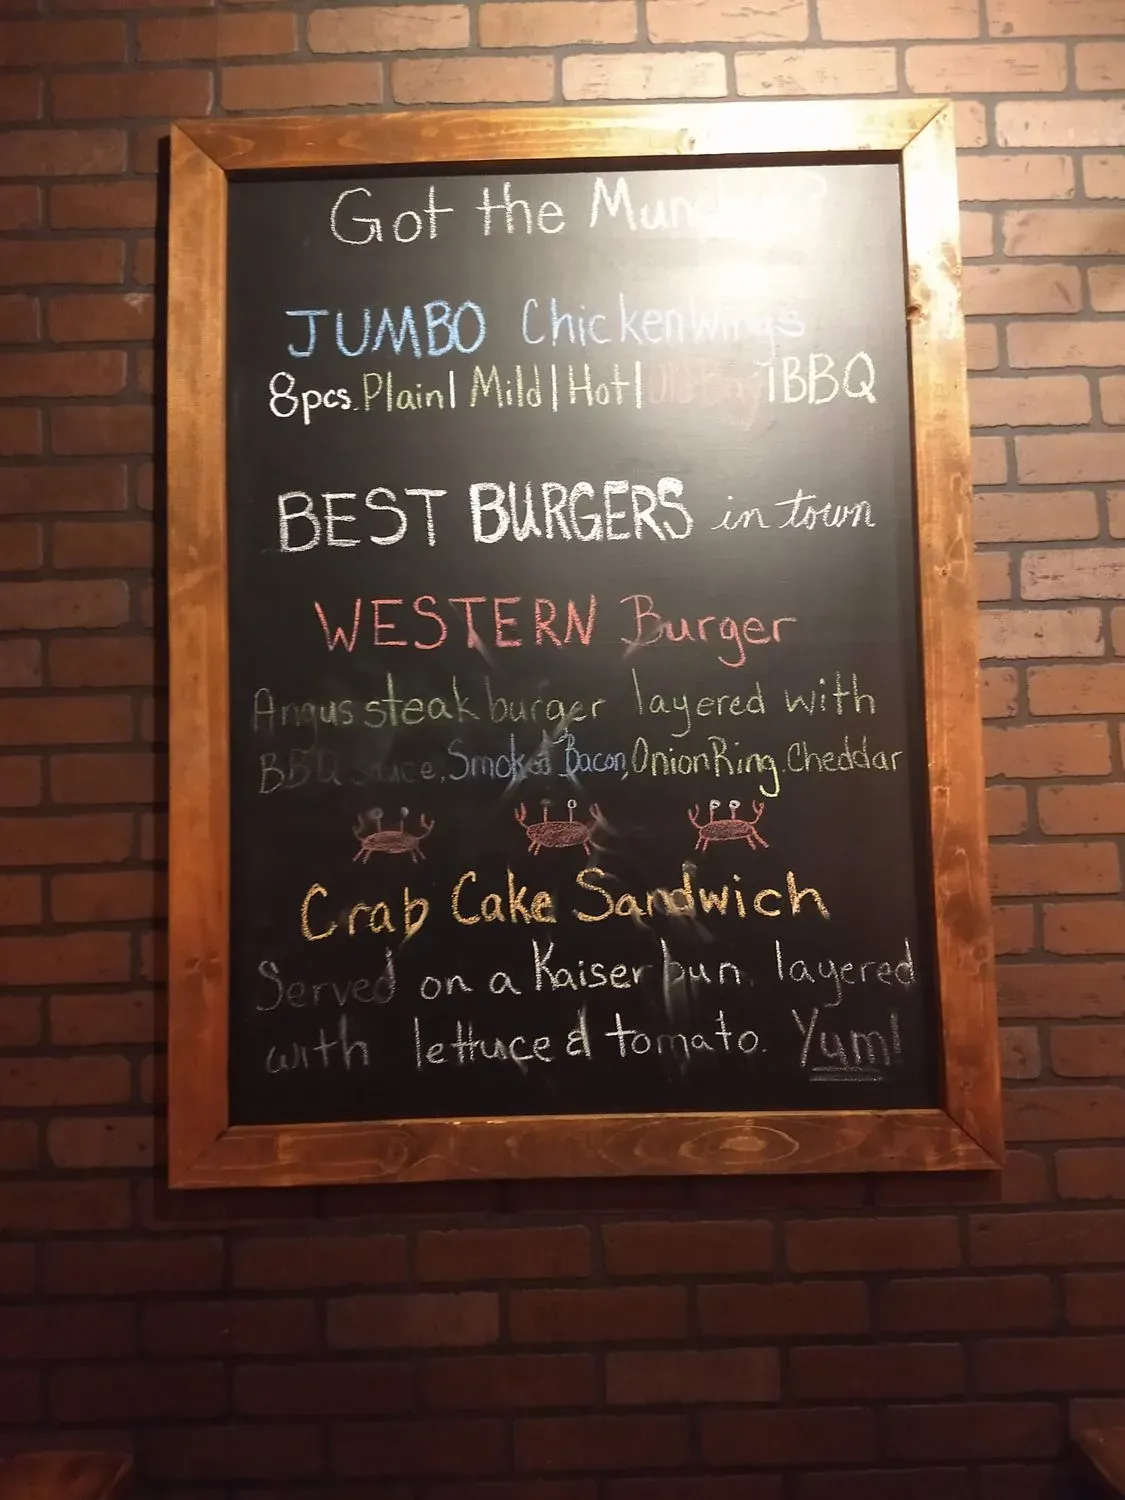 Got the Munchies?
JUMBO Chicken Wings
8pcs. Plain | Mild | Hot | Old Bay | BBQ
BEST BURGERS in town
WESTERN Burger
Angus steak burger layered with
BBQ Sauce, Smoked Bacon, Onion Ring. Cheddar
Crab Cake Sandwich
Served on a Kaiser bun. layered
with lettuce & tomato. Yum!